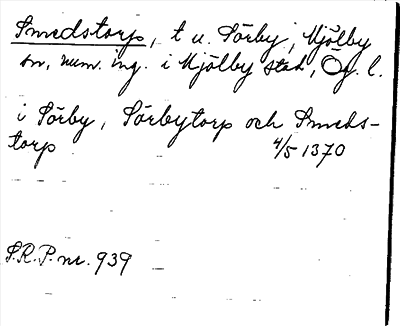 Smedstorp, t u. Sörby, Mjölby
sn, num. ing. i Mjölby stad, Ög. l.
i Sörby, Sörbytorp och Smeds-
torp 4/5 1370
S.R.P. nr. 939